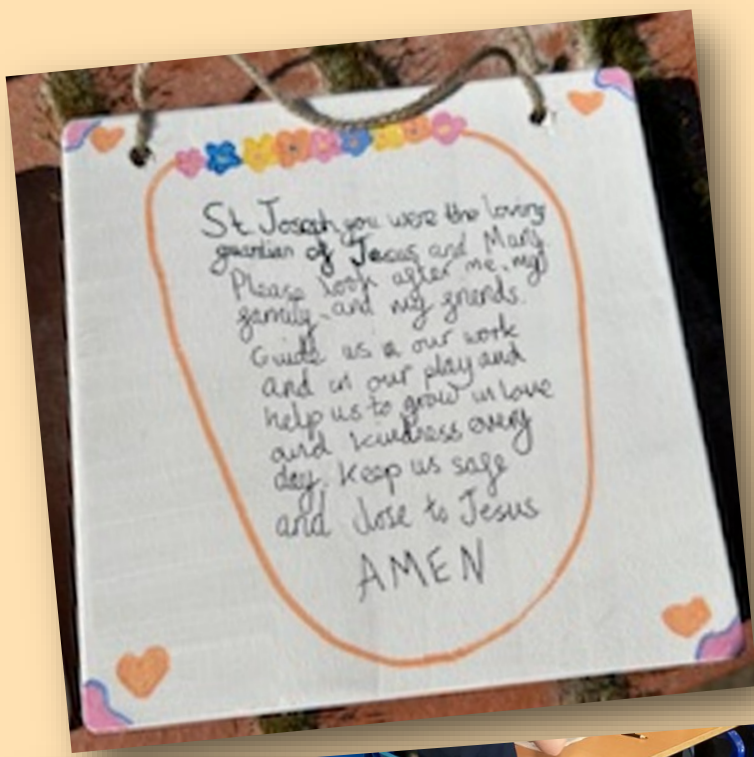 St Joseph you were the loving
guardian of Jesus and Mary.
Please look after me, my
family, and my friends.
Guide us in our work
and in our play and
help us to grow in love
and kindness every
day. Keep us safe
and close to Jesus
AMEN